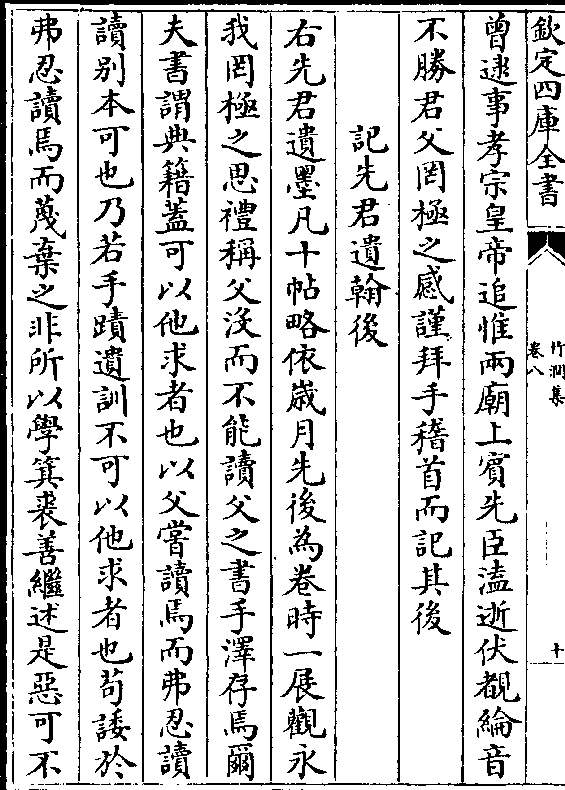 欽定四庫全書
竹澗集
卷八
十
曾逮事孝宗皇帝追惟兩廟上賓先臣溘逝伏覩綸音
不勝君父罔極之感謹拜手稽首而記其後
記先君遺翰後
右先君遺墨凡十帖略依歲月先後為卷時一展觀永
我罔極之思禮稱父沒而不能讀父之書手澤存焉爾
夫書謂典籍蓋可以他求者也以父嘗讀焉而弗忍讀
讀别本可也乃若手蹟遺訓不可以他求者也苟諉於
弗忍讀焉而蔑棄之非所以學箕裘善繼述是惡可不